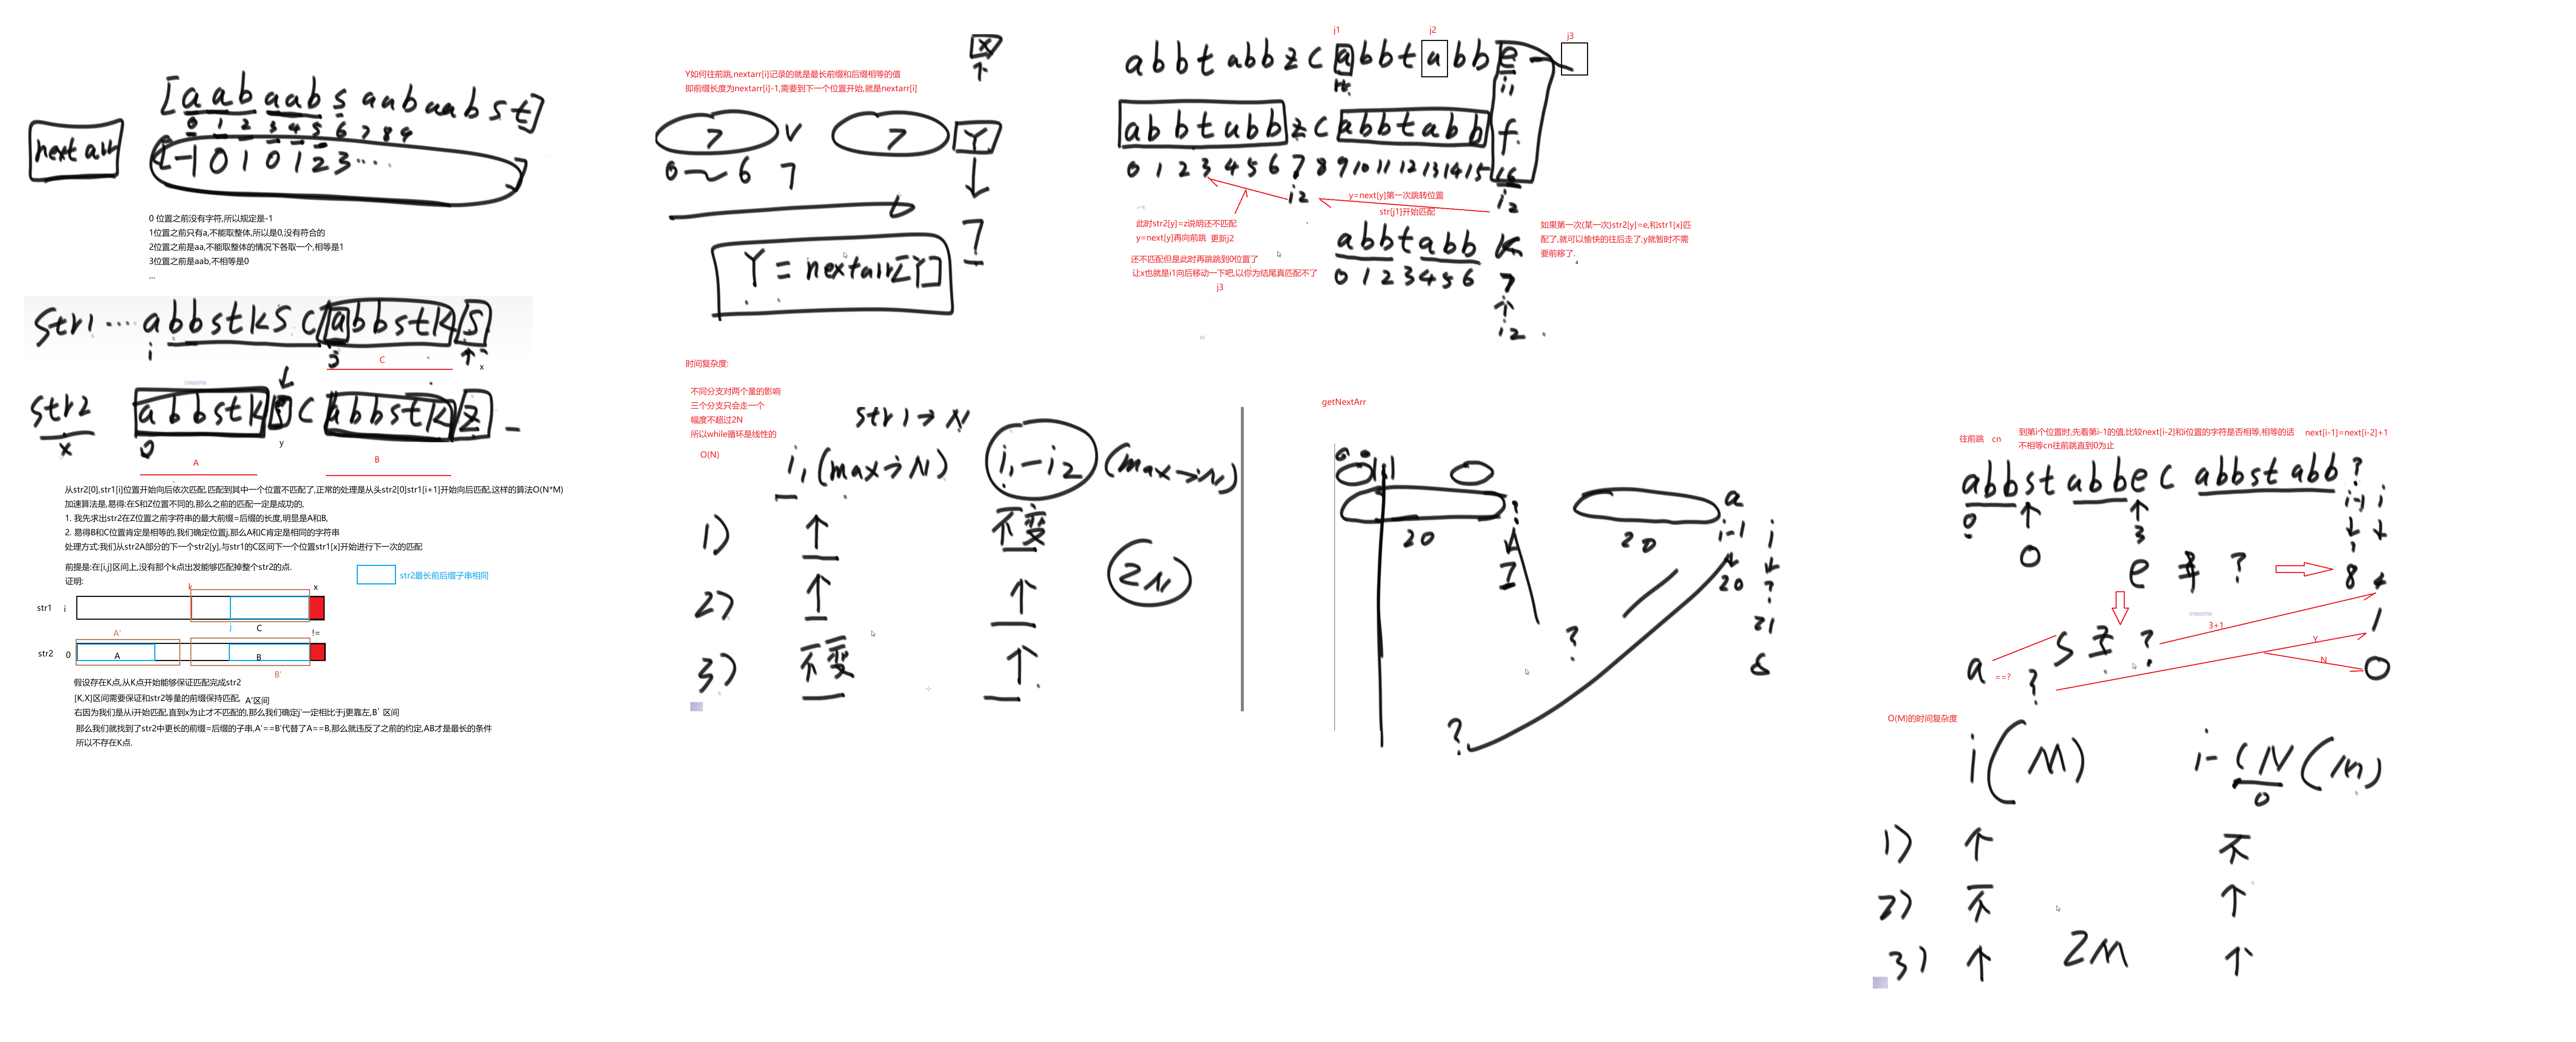 [a a b a a b s a a b a a b s t]
0 1 2 3 4 5 6 7 8 9
next arr
[-1 0 1 0 1 2 3 ... ]
0 位置之前没有字符,所以规定是-1
1位置之前只有a,不能取整体,所以是0,没有符合的
2位置之前是aa,不能取整体的情况下各取一个,相等是1
3位置之前是aab,不相等是0
...
str1 ... a b b s t k s c a b b s t k s
i j C x
str2 a b b s t k s c a b b s t k z
x 0 y
A B
从str2[0],str1[i]位置开始向后依次匹配,匹配到其中一个位置不匹配了,正常的处理是从头str2[0]str1[i+1]开始向后匹配,这样的算法O(N*M)
加速算法是,易得:在S和Z位置不同的,那么之前的匹配一定是成功的,
1. 我先求出str2在Z位置之前字符串的最大前缀=后缀的长度,明显是A和B,
2. 易得B和C位置肯定是相等的,我们确定位置j,那么A和C肯定是相同的字符串
处理方式:我们从str2A部分的下一个str2[y],与str1的C区间下一个位置str1[x]开始进行下一次的匹配
前提是:在[i,j]区间上,没有那个k点出发能够匹配掉整个str2的点.
证明:
str2最长前后缀子串相同
k x
str1 i
j C
A' !=
str2 0 A B
B'
假设存在K点,从K点开始能够保证匹配完成str2
[K,X]区间需要保证和str2等量的前缀保持匹配, A'区间
右因为我们是从i开始匹配,直到x为止才不匹配的,那么我们确定j'一定相比于j更靠左,B' 区间
那么我们就找到了str2中更长的前缀=后缀的子串,A'==B'代替了A==B,那么就违反了之前的约定,AB才是最长的条件
所以不存在K点.
X
Y如何往前跳,nextarr[i]记录的就是最长前缀和后缀相等的值
即前缀长度为nextarr[i]-1,需要到下一个位置开始,就是nextarr[i]
7 7 Y
0 6 7
7
Y = nextarr[Y]
时间复杂度:
不同分支对两个量的影响
三个分支只会走一个
幅度不超过2N
所以while循环是线性的
O(N)
str1→N
i1(max→N) i1-i2 (max→N)
1) ↑ 不变
2) ↑ ↑
3) 不变 ↑
2N
j1 j2 j3
a b b t a b b z c a b b t a b b e
i1
a b b t a b b z c a b b t a b b f
0 1 2 3 4 5 6 7 8 9 10 11 12 13 14 15 16
i2 i2
y=next[y]第一次跳转位置
str[j1]开始匹配
此时str2[y]=z说明还不匹配
y=next[y]再向前跳 更新j2
还不匹配但是此时再跳跳到0位置了
让x也就是i1向后移动一下吧,以你为结尾真匹配不了
j3
a b b t a b b k
0 1 2 3 4 5 6 7
↑
i2
如果第一次(某一次)str2[y]=e,和str1[x]匹
配了,就可以愉快的往后走了,y就暂时不需
要前移了.
getNextArr
a
?
20 20 i-1 i
20 ?
21
?
?
往前跳 cn
到第i个位置时,先看第i-1的值,比较next[i-2]和i位置的字符是否相等,相等的话 next[i-1]=next[i-2]+1
不相等cn往前跳直到0为止
a b b s t a b b e c a b b s t a b b ?
0 ↑ ↑ i-1 i
0 3 8
e ≠ ?
s ≠ ?
3+1
a ==? ?
Y
N
1
0
O(M)的时间复杂度
i(M) i-CN(M)
0
1) ↑ 不
2) 不 ↑
3) ↑ ↑
2M